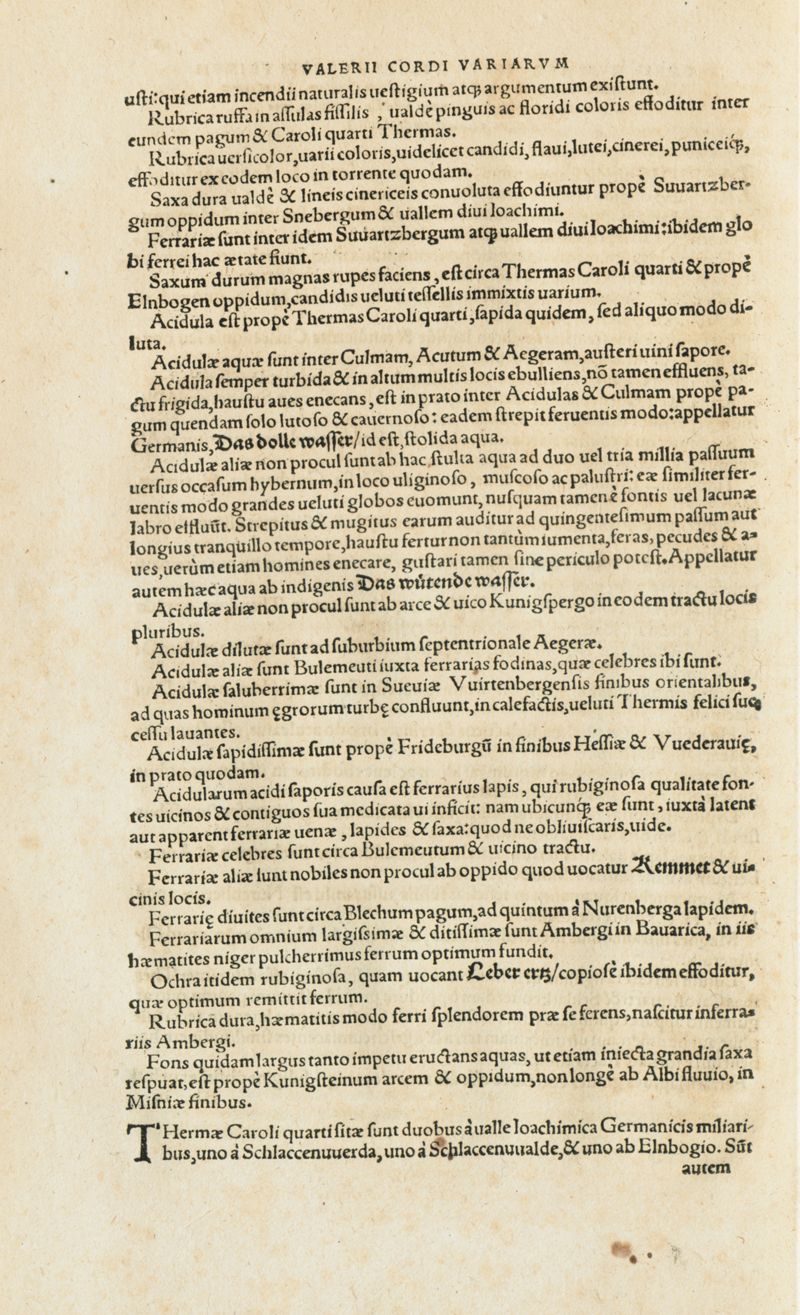 VALERII CORDI VARIARVM
usti: qui etiam incendii naturalis uestigium atqꝫ argumentum existunt.
Rubrica ruffa in assulas fissilis, ualdè pinguis ac floridi coloris effoditur inter
eundem pagum & Caroli quarti Thermas.
Rubrica uersicolor, uarii coloris, uidelicet candidi, flaui, lutei, cinerei, puniceiqꝫ,
effoditur ex eodem loco in torrente quodam.
Saxa dura ualdè & lineis cinericeis conuoluta effodiuntur propè Suuartzber-
gum oppidum inter Snebergum & uallem diui Ioachimi.
Ferrariæ sunt inter idem Suuartzbergum atqꝫ uallem diui Ioachimi: ibidem glo
bi ferrei hac ætate fiunt.
Saxum durum magnas rupes faciens, est circa Thermas Caroli quarti & propè
Elnbogen oppidum, candidis ueluti tessellis immixtis uarium.
Acidula est propè Thermas Caroli quarti, sapida quidem, sed aliquo modo di-
luta.
Acidulæ aquæ sunt inter Culmam, Acutum & Aegeram, austeri uini sapore.
Acidula semper turbida & in altum multis locis ebulliens, nō tamen effluens, ta-
ctu frigida, haustu aues enecans, est in prato inter Acidulas & Culmam propè pa-
gum quendam solo lutoso & cauernoso: eadem strepit feruentis modo: appellatur
Germanis, Das dolle wasser/ id est, stolida aqua.
Acidulæ aliæ non procul sunt ab hac stulta aqua ad duo uel tria millia passuum
uersus occasum hybernum, in loco uliginoso, muscoso ac palustri: eæ similiter fer-
uentis modo grandes ueluti globos euomunt, nusquam tamen è fontis uel lacunæ
labro effluūt. Strepitus & mugitus earum auditur ad quingentesimum passum aut
longius tranquillo tempore, haustu fertur non tantùm iumenta, feras, pecudes & a-
ues, uerùm etiam homines enecare, gustari tamen sine periculo potest. Appellatur
autem hæc aqua ab indigenis Das wütende wasser.
Acidulæ aliæ non procul sunt ab arce & uico Kunigspergo in eodem tractu locis
pluribus.
Acidulæ dilutæ sunt ad suburbium septentrionale Aegeræ.
Acidulæ aliæ sunt Bulemeuti iuxta ferrarias fodinas, quæ celebres ibi sunt.
Acidulæ saluberrimæ sunt in Sueuiæ Vuirtenbergensis finibus orientalibus,
ad quas hominum ęgrorum turbę confluunt, in calefactis, ueluti Thermis felici suc
cessu lauantes.
Acidulæ sapidissimæ sunt propè Frideburgū in finibus Hessiæ & Vuederauię,
in prato quodam.
Acidularum acidi saporis causa est ferrarius lapis, qui rubiginosa qualitate fon-
tes uicinos & contiguos sua medicata ui inficit: nam ubicunqꝫ eæ sunt, iuxtà latent
aut apparent ferrariæ uenæ, lapides & saxa: quod ne obliuiscaris, uide.
Ferrariæ celebres sunt circa Bulemeutum & uicino tractu.
Ferrariæ aliæ sunt nobiles non procul ab oppido quod uocatur Kemmet & ui-
cinis locis.
Ferrarię diuites sunt circa Blechum pagum, ad quintum à Nurenberga lapidem.
Ferrariarum omnium largissimæ & ditissimæ sunt Ambergi in Bauarica, in iis
hæmatites niger pulcherrimus ferrum optimum fundit.
Ochra itidem rubiginosa, quam uocant Leber ertz/ copiose ibidem effoditur,
quæ optimum remittit ferrum.
Rubrica dura, hæmatitis modo ferri splendorem præ se ferens, nascitur in ferra-
riis Ambergi.
Fons quidam largus tanto impetu eructans aquas, ut etiam iniecta grandia saxa
respuat, est propè Kunigsteinum arcem & oppidum, non longè ab Albi fluuio, in
Misniæ finibus.
THermæ Caroli quarti sitæ sunt duobus à ualle Ioachimica Germanicis miliari-
bus, uno à Schlaccenuuerda, uno à Schlaccenuualde, & uno ab Elnbogio. Sūt
autem